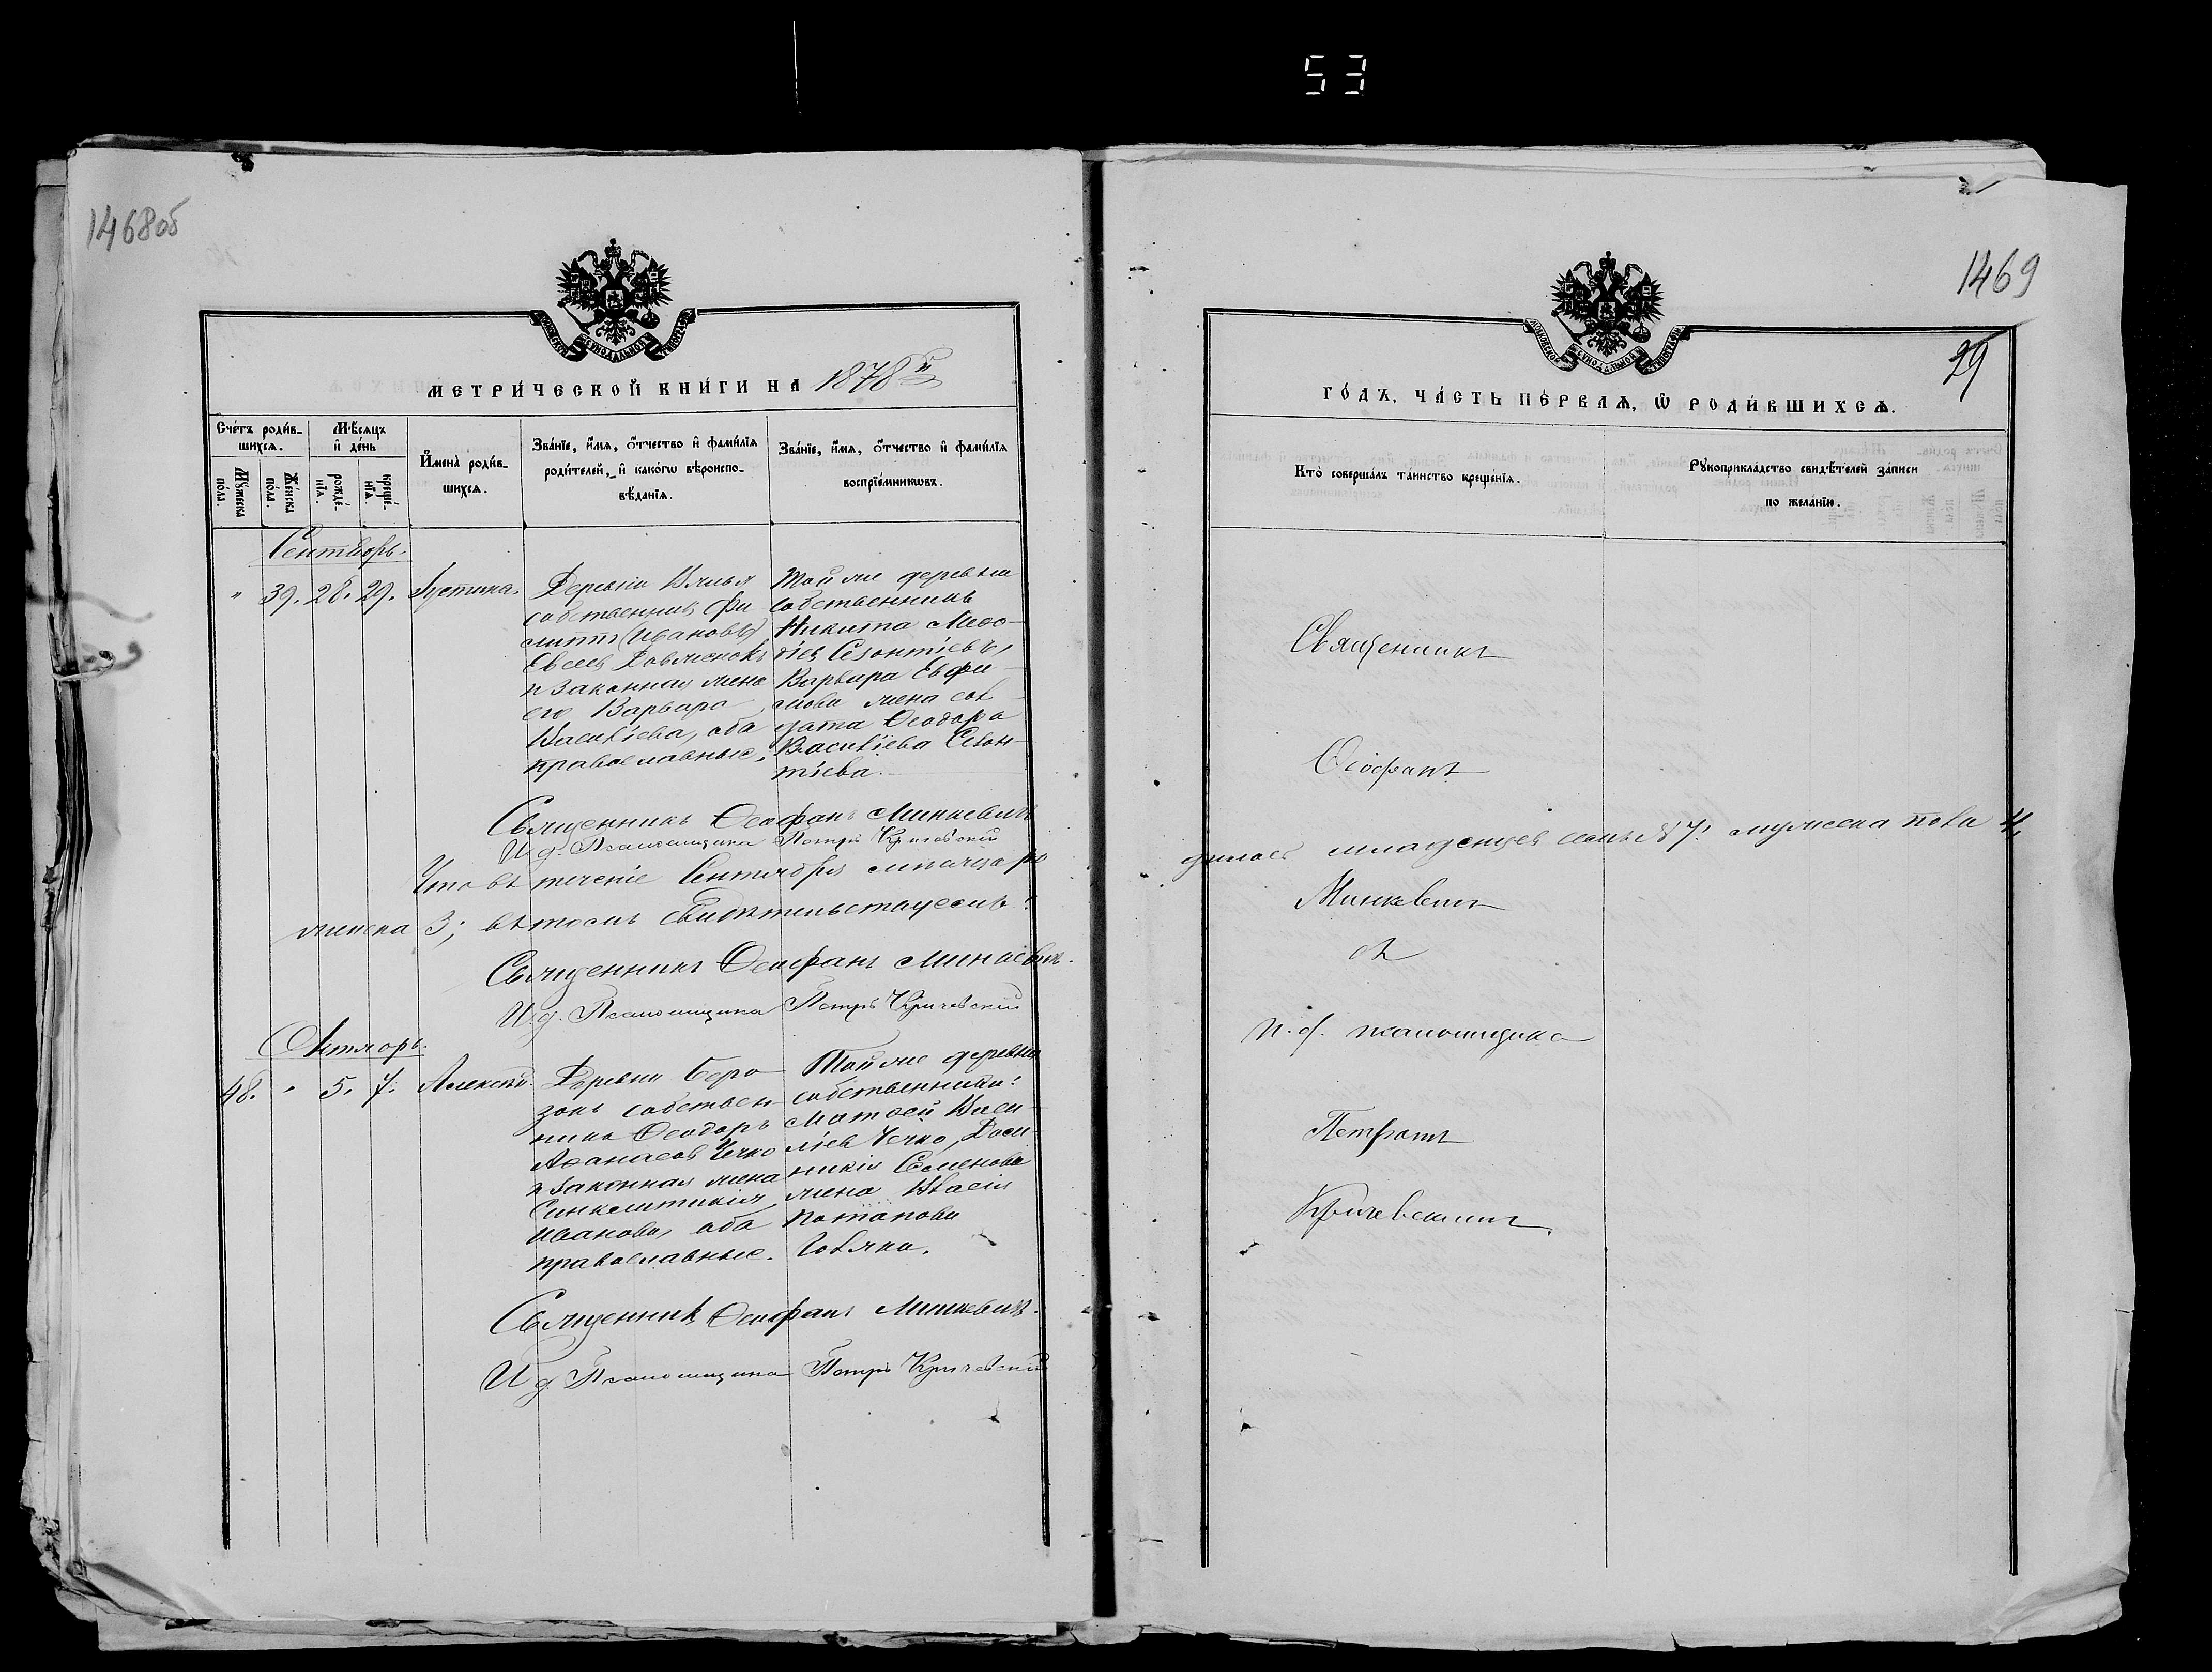 53
1468об
МЕТРИ́ЧЕСКОЙ КНИ́ГИ НА 1878й
Сче́тъ роди́в-
шихсѧ.
Мѣ́сяцъ
и҆ де́нь
Мꙋ́жеска
по́ла.
Же́нска
по́ла.
рожде́-
нїѧ.
креще́-
нїѧ.
И҆мена̀ роди́в-
шихсѧ.
Зва́нїе, и҆́мѧ, ѻ҆́тчество и҆ фами́лїѧ
роди́телей, и҆ како́гѡ вѣроиспо-
вѣ́данїѧ.
Зва́нїе, и҆́мѧ, ѻ҆́тчество и҆ фами́лїѧ
воспрїе́мникѡвъ.
Сентябрь.
" 39. 28. 29. Іустина.
Деревни
собственникъ Фи
липпъ (Ивановъ)
Евсеев
и законная жена
его Варвара
Василіева, оба
православные.
Той же деревни
собственникъ
Никита Меѳо-
діев Леонтіевъ,
Варвара Евфи
мова жена сол
дата Ѳеодора
Василіева Леон-
тіева.
Священникъ Ѳеофанъ Минкевичъ
И. д. Псаломщика Петръ Кричевский
Что въ теченіе Сентября мѣсяца ро
женска 3; въ томъ свидѣтельствуемъ:
Священникъ Ѳеофанъ Минкевичъ.
И. д. Псаломщика Петръ Кричевский
Октябрь.
48. " 5. 7. Алексѣй.
Деревни Бере
зокъ собствен-
никъ Ѳеодоръ
Аѳанасов Чечко
и законная жена
Синклитикія
Иванова, оба
православные.
Той же деревни
собственники:
Матѳей Васи-
ліев Чечко,
Семенова
жена Власія
Потапова
Священникъ Ѳеофанъ Минкевичъ.
И д. Псаломщика Петръ Кричевский
1469
29
ГО́ДЪ, ЧА́СТЬ ПЕ́РВАѦ, Ѽ РОДИ́ВШИХСѦ.
Кто̀ соверша́лъ та́инство креще́нїѧ.
Рꙋкоприкла́дство свидѣ́телей за́писи
по жела́нїю.
Священникъ
Ѳеофанъ
дилось младенцев семь № 7. мужеска пола 4,
Минкевичъ
съ
и. д. псаломщика
Петромъ
Кричевскимъ.